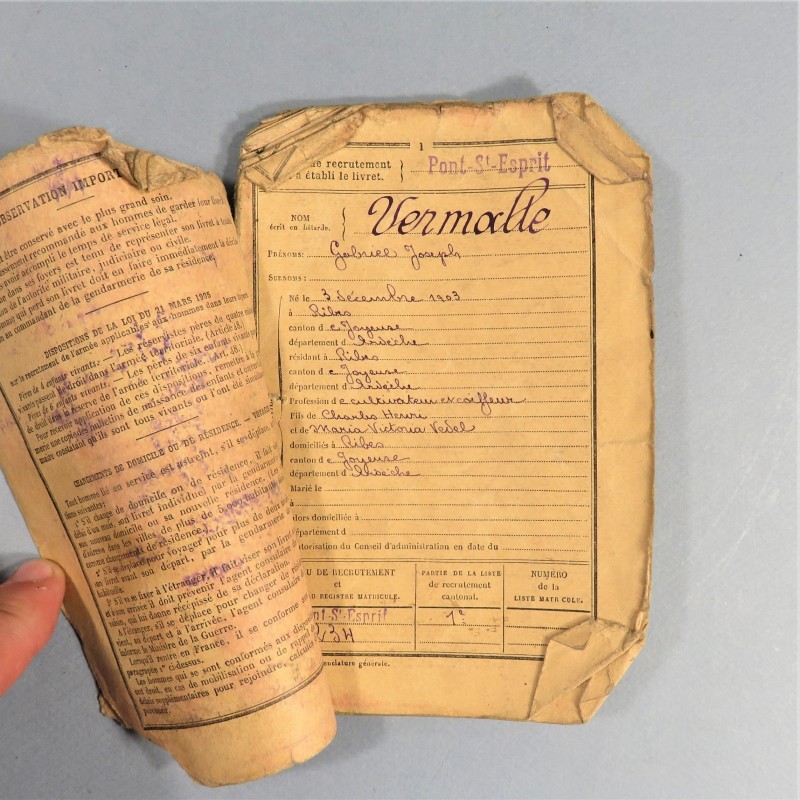 OBSERVATION IMPORT
être conservé avec le plus grand soin.
recommandé aux hommes de garder leur livret
avoir accompli le temps de service légal.
dans ses foyers est tenu de représenter son livret à toute
de l'autorité militaire, judiciaire ou civile.
qui perd son livret doit en faire immédiatement la
au commandant de la gendarmerie de sa résidence.
DISPOSITIONS DE LA LOI DU 21 MARS 1905
sur le recrutement de l'armée applicables aux hommes dans leurs foyers
Père de 4 enfants vivants. — Les réservistes pères de quatre
vivants passent de droit dans l'armée territoriale. (Article 48.)
Père de 6 enfants vivants. — Les pères de six enfants vivants
de droit dans la réserve de l'armée territoriale. (Art. 48.)
Pour recevoir application de ces dispositions, remettre à la
marie une copie des bulletins de naissance des enfants et
maire constatant qu'ils sont tous vivants ou l'ont été
CHANGEMENTS DE DOMICILE OU DE RÉSIDENCE. —
Tout homme lié au service est astreint, s'il se déplace,
suivantes:
1° S'il change de domicile ou de résidence, il fait
délai d'un mois, son livret individuel par la gendarmerie
son nouveau domicile ou sa nouvelle résidence.
dans les villes de plus de 5.000 habitants
comme changement de résidence.)
2° S'il se déplace pour voyager pour plus de deux
son livret avant son départ, par la gendarmerie
habituelle.
3° S'il va se fixer à l'étranger, il fait viser son livret
arrivée il doit prévenir l'agent consulaire
qui lui donne récépissé de sa déclaration.
A l'étranger, s'il se déplace pour changer de
au départ et à l'arrivée, l'agent consulaire
informe le Ministre de la Guerre.
Lorsqu'il rentre en France, il se conforme
paragraphe 1° ci-dessus.
Les hommes qui se sont conformés aux
ont droit, en cas de mobilisation ou de rappel
délais supplémentaires pour rejoindre, calculés
1
de recrutement
a établi le livret.
Pont-St-Esprit
NOM
écrit en bâtarde.
Vermalle
PRÉNOMS: Gabriel Joseph
SURNOMS:
Né le 3 décembre 1903
à Ribes
canton de Joyeuse
département d Ardèche
résidant à Ribes
canton de Joyeuse
département d Ardèche
Profession de cultivateur ex coiffeur
Fils de Charles Henri
et de Maria Victoria Vedel
domiciliés à Ribes
canton de Joyeuse
département d Ardèche
Marié le
à
alors domiciliée à
département d
Autorisation du Conseil d'administration en date du
U DE RECRUTEMENT
et
U REGISTRE MATRICULE.
PARTIE DE LA LISTE
de recrutement
cantonal.
NUMÉRO
de la
LISTE MATRICULE.
nt-St-Esprit
234
1e
nomenclature générale.